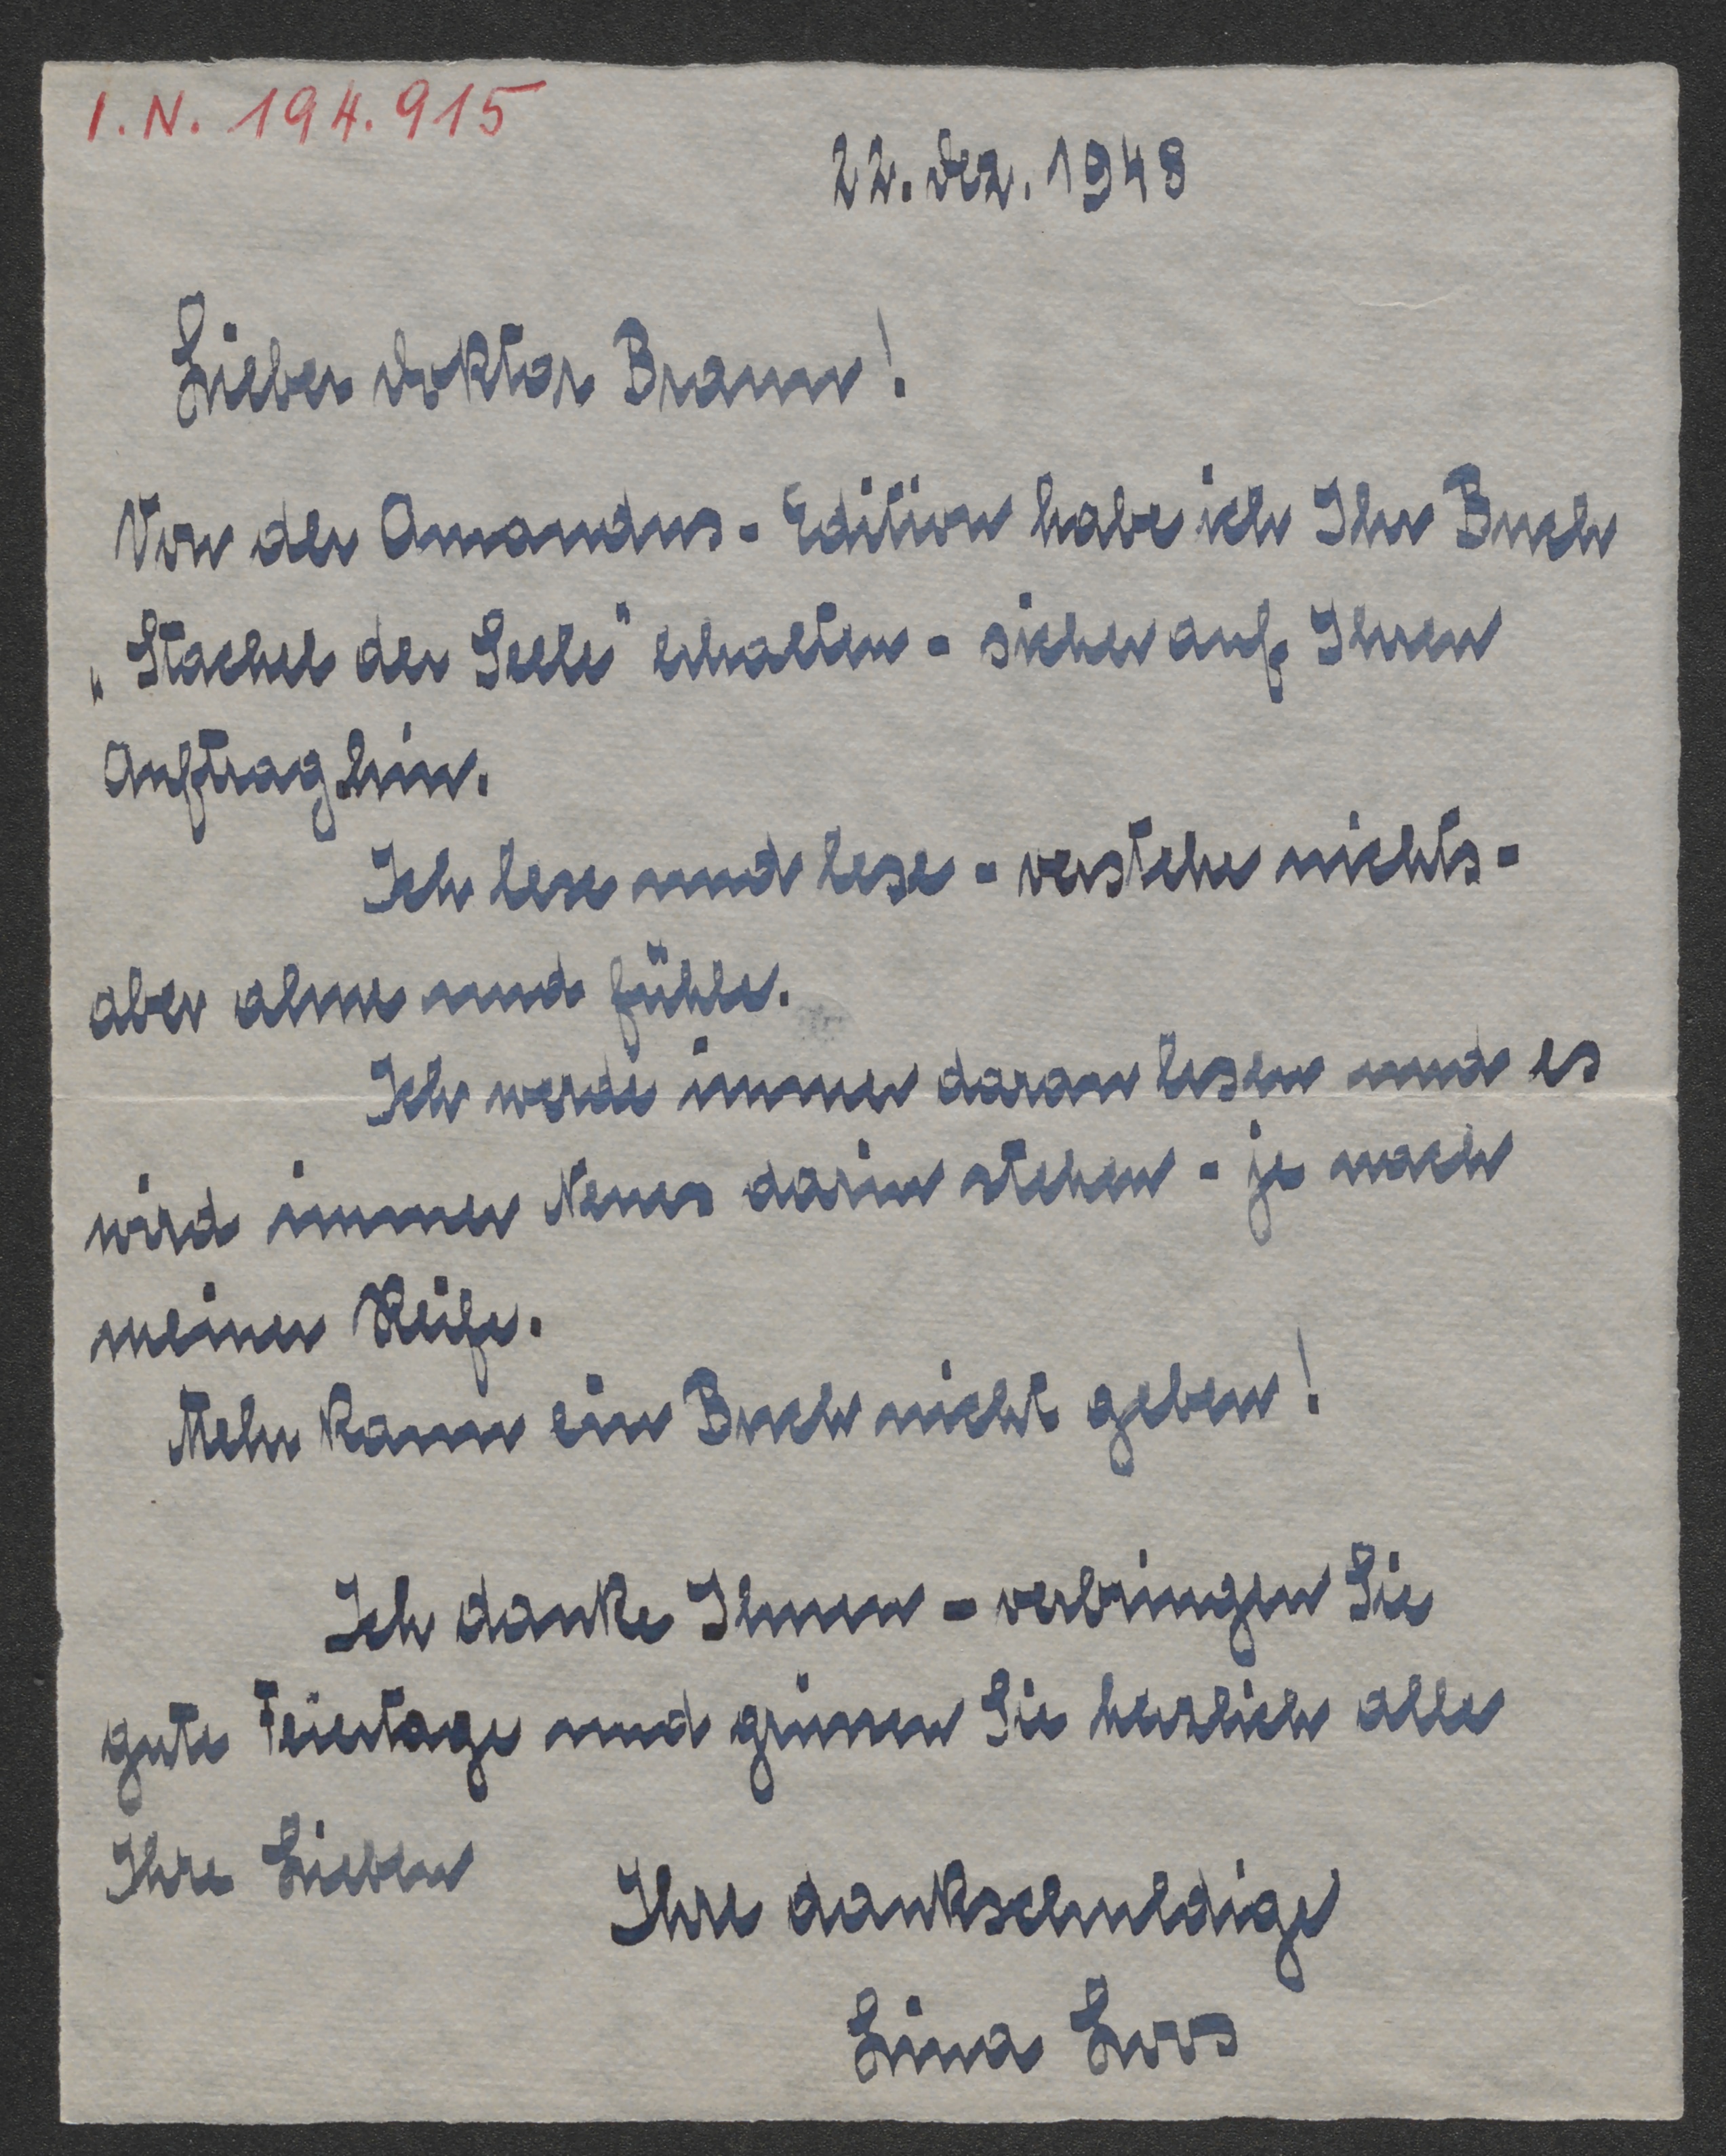 I.N. 194.915
22. Dez. 1948
Lieber Doktor Braun!
Von der Amandus-Edition habe ich Ihr Buch
„Stachel der Seele" erhalten - sicher auf Ihren
Auftrag hin.
Ich lese und lese - verstehe nichts -
aber ahne und fühle.
Ich werde immer daran lesen und es
wird immer Neues darin stehen - je nach
meiner Reife.
Mehr kann ein Buch nicht geben!
Ich danke Ihnen - verbringen Sie
gute Feiertage und grüssen Sie herzlich alle
Ihre Lieben
Ihre dankschuldige
Lina Loos